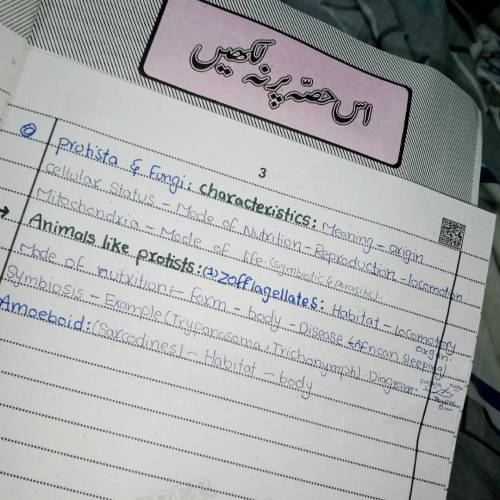 اس حصّہ پر نہ لکھیں
3
Protista & Fungi: characteristics: Meaning - origin
cellular status - Mode of Nutrition - Reproduction - locomotion
Mitochondria - Mode of life (symbiotic & parasitic)
→ Animals like protists: (1) Zofflagellates: Habitat - Locomotory organ
Mode of nutrition:- form - body - Disease (African sleeping)
Symbiosis - Example (Trypanosoma, Trichonymph) - Diagram
Amoeboid: (Sarcodines) - Habitat - body